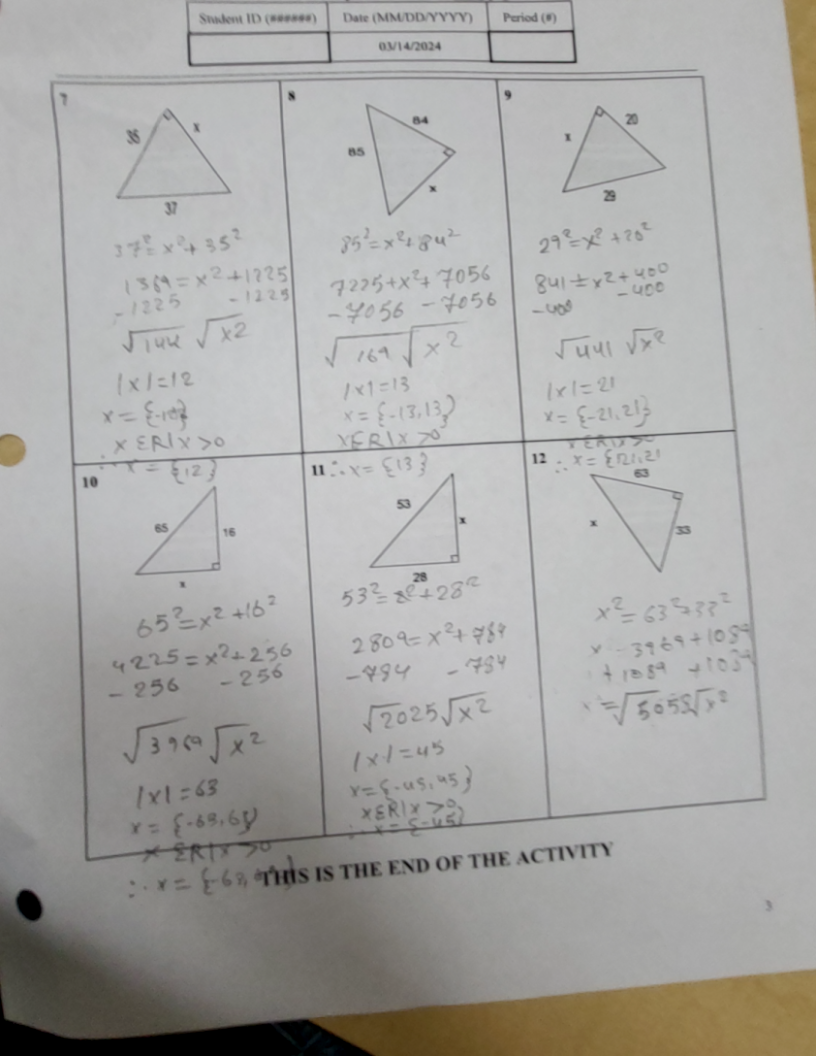 Student ID (######) Date (MM/DD/YYYY) Period (#)
03/14/2024
7
35 x
37
37²=x²+35²
1369=x²+1225
-1225 -1225
√144 √x2
|x|=12
x =
x ER|x >0
∴ x = {12}
8
84
85
x
85²=x²+84²
7225+x²+7056
-7056 -7056
√169 √x²
|x|=13
x = {-13,13}
xER|x >0
∴x = {13}
9
20
x
29
29²=x²+20²
841=x²+400
-400 -400
√441 √x²
|x|=21
x = {-21,21}
x ER|x>0
∴ x =
10
65 16
x
65²=x²+16²
4225=x²+256
-256 -256
√3969 √x²
|x|=63
x = {-63,63}
x ER|x >0
∴x =
11
53
x
28
53²=x²+28²
2809=x²+784
-784 -784
√2025 √x²
|x|=45
x={-45,45}
xER|x >0
∴x = {-45}
12
63
x
33
x²=63²+33²
x 3969+1089
+1089 +1089
x =√5058 √x²
THIS IS THE END OF THE ACTIVITY
3